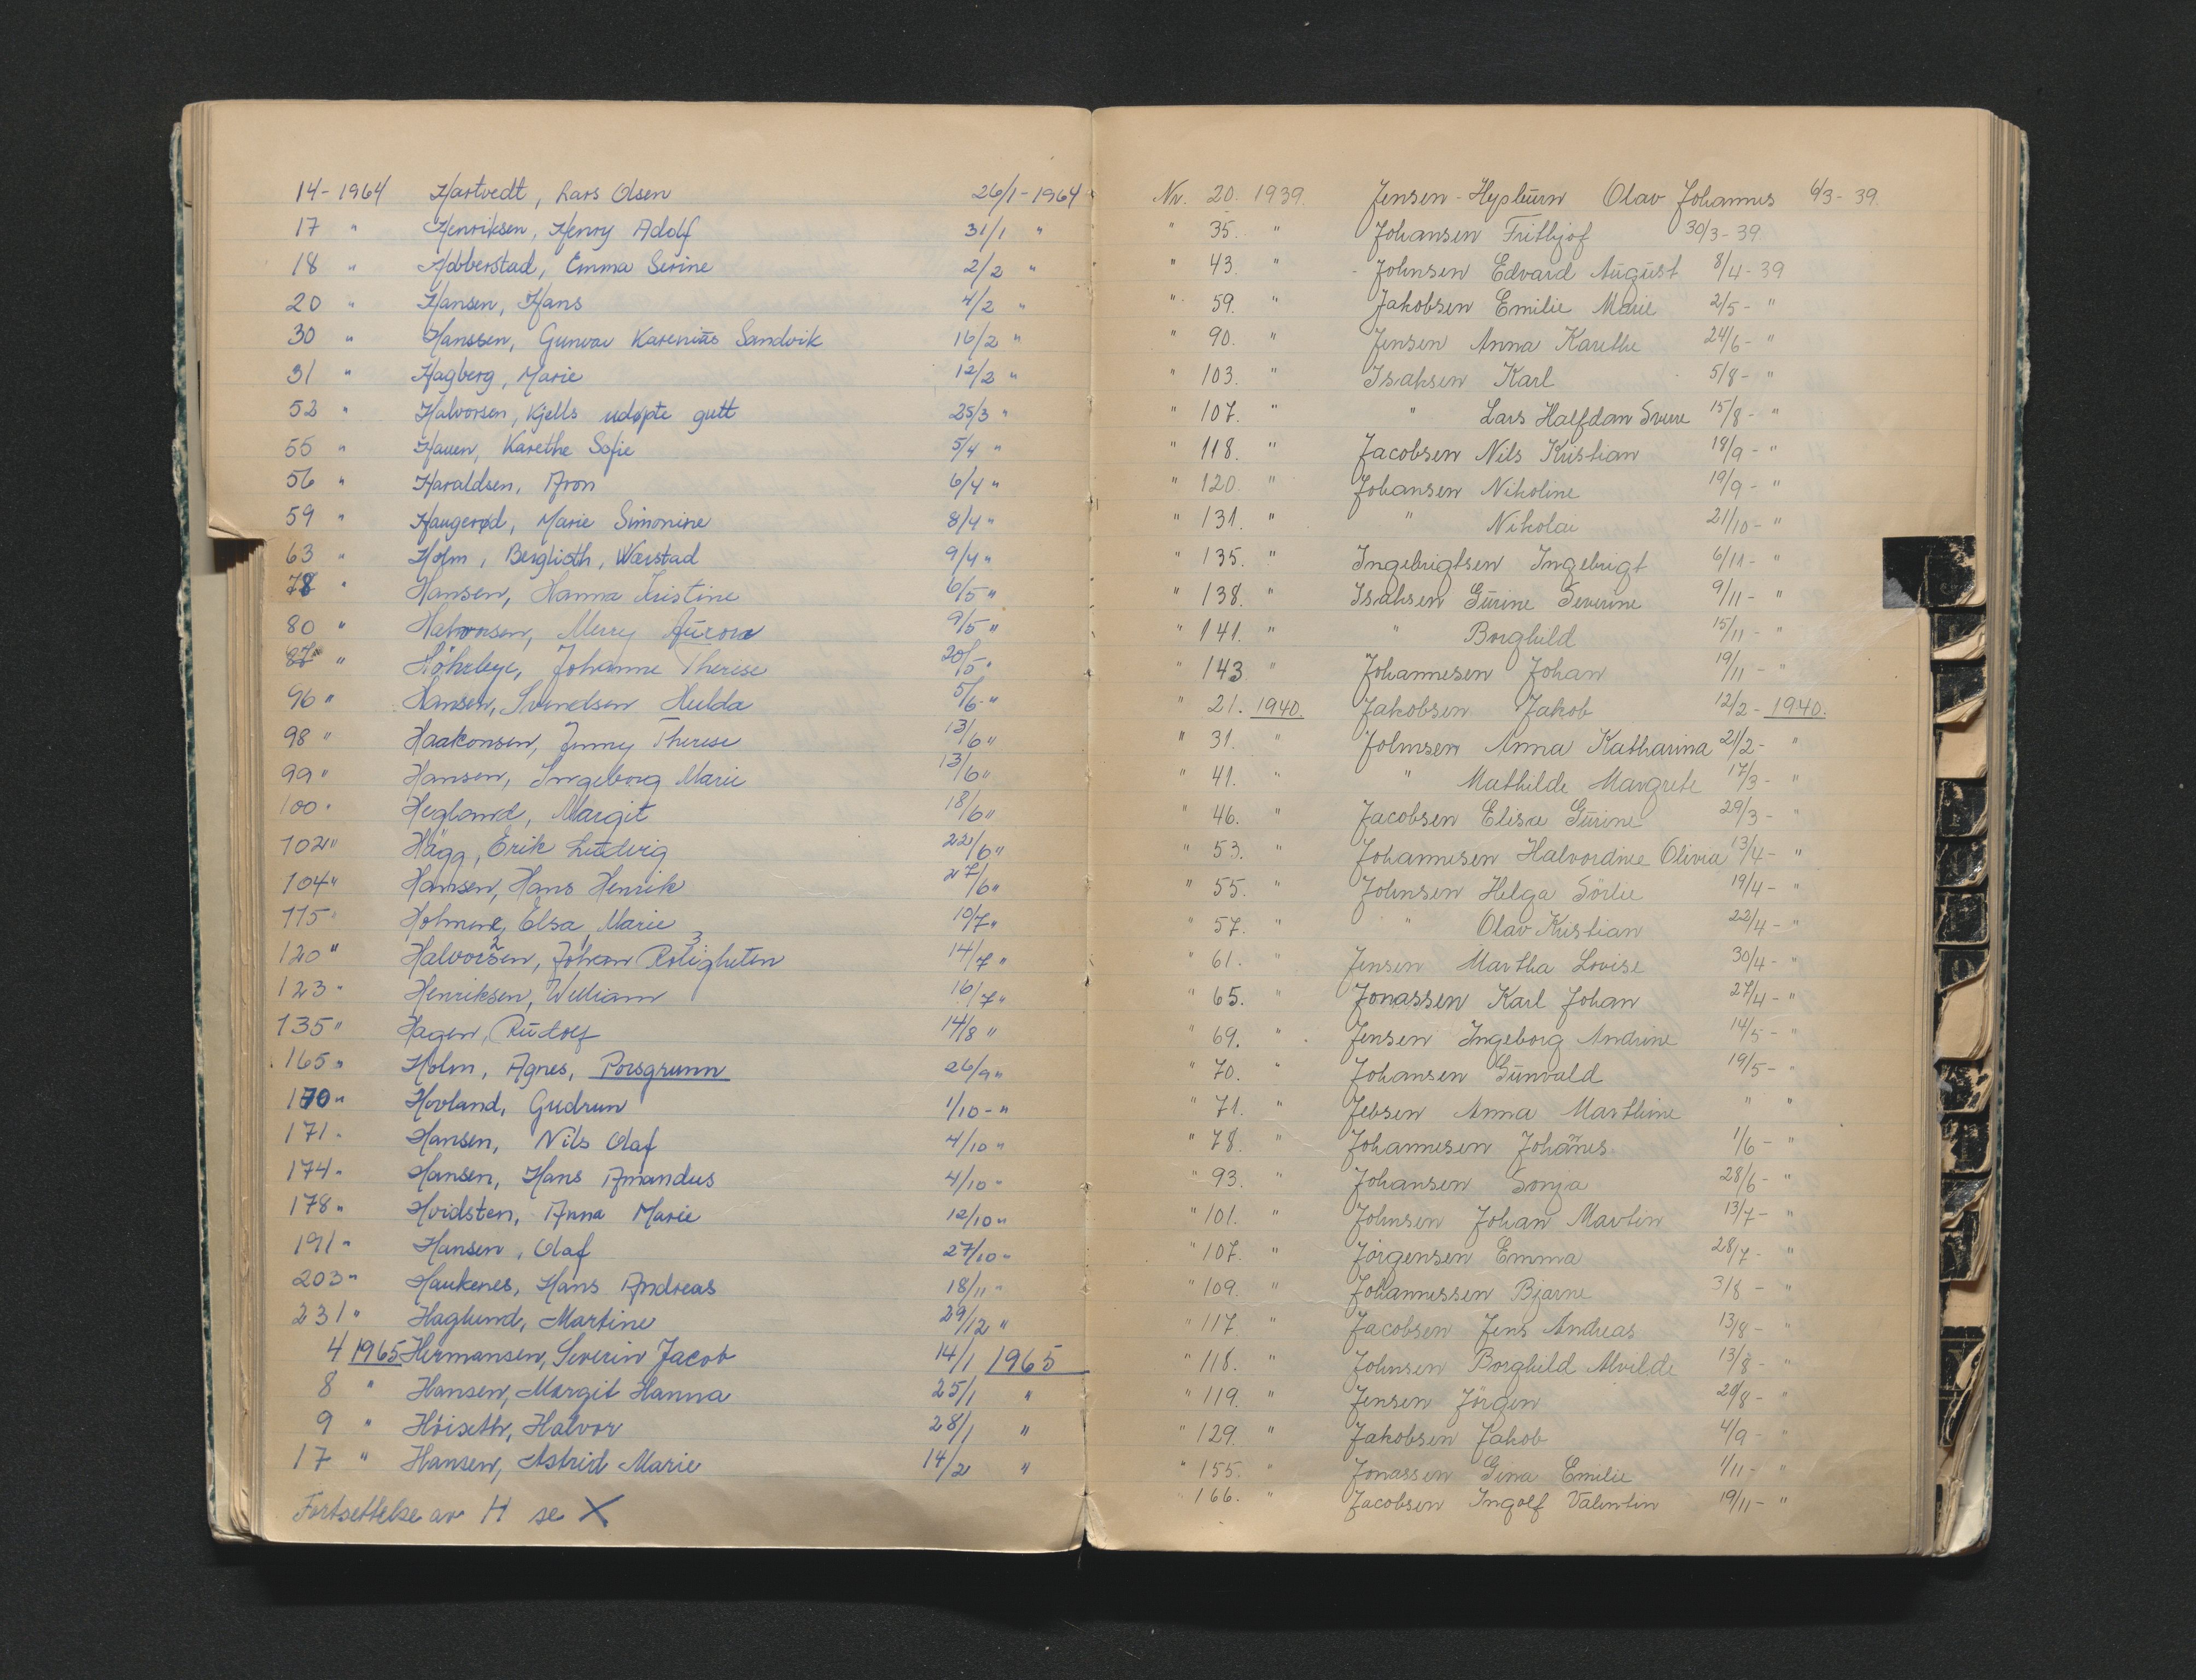 14-1964 Hartvedt, Lars Olsen 26/1-1964
17 " Henriksen, Henry Adolf 31/1 "
18 " Hobberstad, Emma Serine 2/2 "
20 " Hansen, Hans 4/2 "
30 " Hanssen, Gunvor Sandvik 16/2 "
31 " Hagberg, Marie 12/2 "
52 " Halvorsen, Kjells udøpte gutt 25/3 "
55 " Hauen, Karethe Sofie 5/4 "
56 " Haraldsen, Aron 6/4 "
59 " Haugerød, Marie Simonine 8/4 "
63 " Holm, Berglioth, Wærstad 9/4 "
78 " Hansen, Hanna Kristine 6/5 "
80 " Halvorsen, Merry Aurora 9/5 "
87 " Johanne Therese 20/5 "
96 " Hansen, Svendsen Hulda 5/6 "
98 " Haakonsen, Jenny Therese 13/6 "
99 " Hansen, Ingeborg Marie 13/6 "
100 " Hegland, Margit 18/6 "
102 " Hägg, Erik Ludvig 22/6 "
104 " Hansen, Hans Henrik 27/6 "
115 " Holmene, Elsa Marie 10/7 "
120 " Halvorsen, Johan Roligheten 14/7 "
123 " Henriksen, William 16/7 "
135 " Hagen, Rudolf 14/8 "
165 " Holm, Agnes, Porsgrunn 26/9 "
170 " Hovland, Gudrun 1/10 - "
171 " Hansen, Nils Olaf 4/10 "
174 " Hansen, Hans Amandus 4/10 "
178 " Hvidsten, Anna Marie 12/10 "
191 " Hansen, Olaf 27/10 "
203 " Haukenes, Hans Andreas 18/11 "
231 " Haglund, Martine 29/12 "
4 1965 Hermansen, Severin Jacob 14/1 1965
8 " Hansen, Margit Hanna 25/1 "
9 " Höiseth, Halvor 28/1 "
17 " Hansen, Astrid Marie 14/2 "
Fortsettelse av H se X
Nr. 20. 1939. Jensen-Hepburn Olav Johannes 6/3-39.
" 35. " Johansen Frithjof 30/3-39.
" 43. " Johnsen Edvard August 8/4-39
" 59. " Jakobsen Emilie Marie 2/5- "
" 90. " Jensen Anna Karethe 24/6- "
" 103. " Isaksen Karl 5/8- "
" 107. " " Lars Halfdan Sverre 15/8- "
" 118. " Jacobsen Nils Kristian 18/9- "
" 120. " Johansen Nikoline 19/9- "
" 131. " " Nikolai 21/10- "
" 135. " Ingebrigtsen Ingebrigt 6/11- "
" 138. " Isaksen Gurine Severine 9/11- "
" 141. " " Borghild 15/11- "
" 143 " Johannesen Johan 19/11- "
" 21. 1940. Jakobsen Jakob 12/2-1940.
" 31. " Johnsen Anna Katharina 21/2- "
" 41. " " Mathilde Margrete 17/3- "
" 46. " Jacobsen Elisa Gurine 29/3- "
" 53. " Johannesen Halvordine Olivia 13/4- "
" 55. " Johnsen Helga Sörlie 19/4- "
" 57. " " Olav Kristian 22/4- "
" 61. " Jensen Martha Lovise 30/4- "
" 65. " Jonassen Karl Johan 27/4- "
" 69. " Jensen Ingeborg Andrine 14/5- "
" 70. " Johansen Gunvald 19/5- "
" 71. " Jebsen Anna Marthine " "
" 78. " Johannesen Johannes 1/6- "
" 93. " Johansen Sonja 28/6- "
" 101. " Johnsen Johan Martin 13/7- "
" 107. " Jörgensen Emma 28/7- "
" 109. " Johannessen Bjarne 3/8- "
" 117 " Jacobsen Jens Andreas 13/8- "
" 118. " Johnsen Borghild Alvilde 13/8- "
" 119. " Jensen Jörgen 20/8- "
" 129. " Jakobsen Jakob 4/9- "
" 155. " Jonassen Gina Emilie 1/11- "
" 166. " Jacobsen Ingolf Valentin 19/11- "